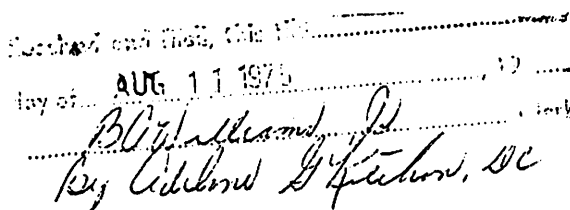 Received and filed, this the
day of AUG 11 1975, 19
B A Williams, Jr Clerk
By Adeline G Kitchen, DC